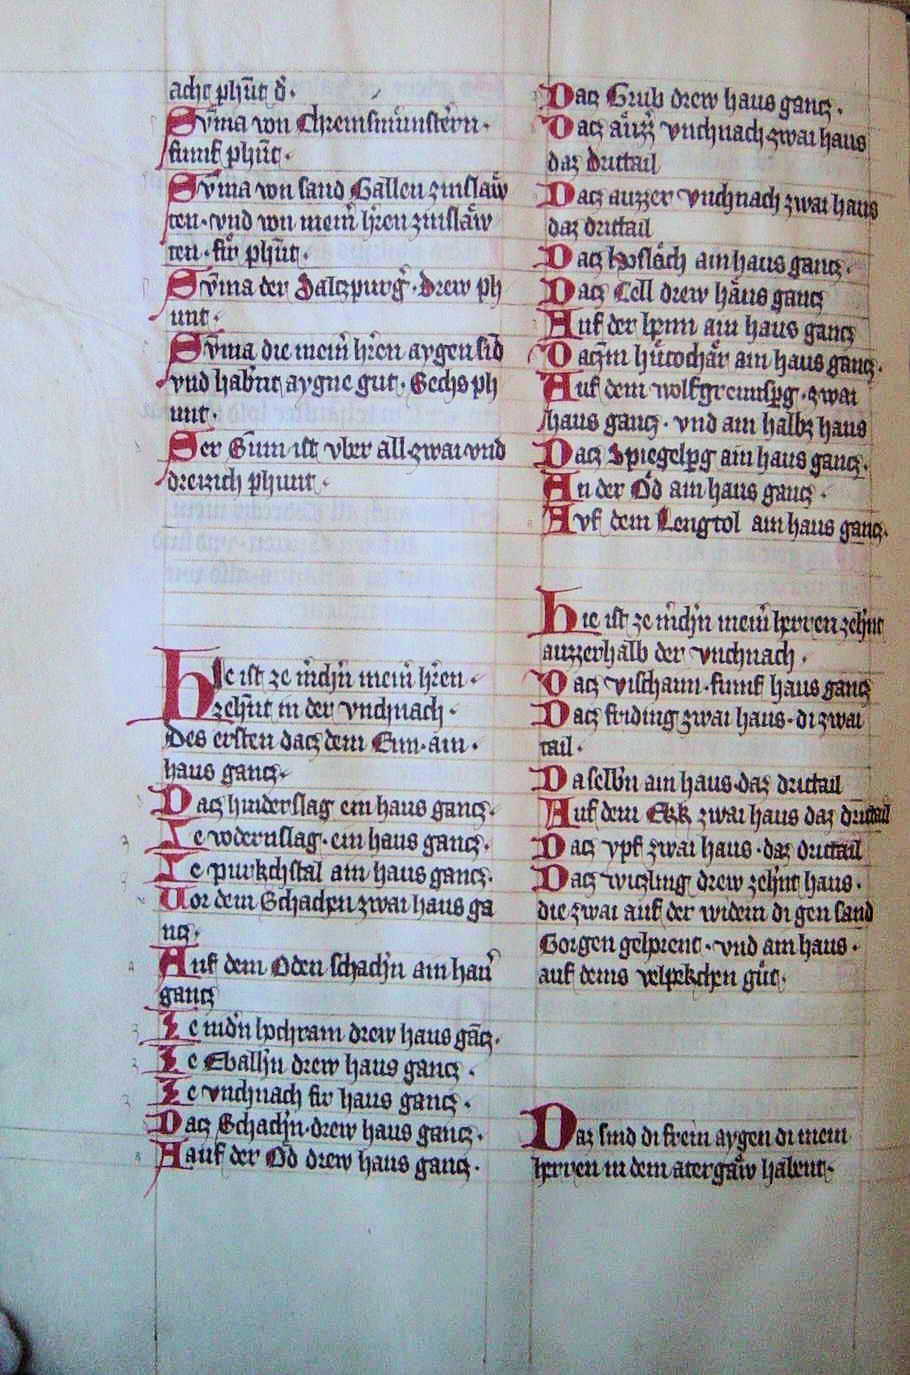 acht phūt d̄.
Sūma von Chremsmunstern.
funf phūt.
Sūma von sand Gallen zinslaw
ten. vnd von meim̄ hr̄en zinslaw
ten. fir phūt.
Sūma der Salczpurg̃. Drew ph
unt.
Sūma die meim̄ hr̄en aygen sid̄
vnd habn̄t aygne gut. Sechs ph
unt.
Der Sūm ist vber all. zwai vnd
dreizich phunt.
Hie ist ze m̄chn̄ meim̄ hr̄en.
zehn̄t in der vnchnach.
Des ersten dacz dem Enn. ain.
haus gancz.
Dacz hinderslag ein haus gancz.
Ze vdernslag. ein haus gancz.
Ze purkchstal ain haus gancz.
Vor dem Schachen zwai haus ga
ncz.
Auf dem Oden schachn̄ ain hau
gancz
Ze nidn̄ hochram drew haus gācz.
Ze Eballn̄ drew haus gancz.
Ze vnchnach fir haus gancz.
Dacz Schachn̄. drew haus gancz.
Aauf der Ōd drew haus gancz.
Dacz Grub drew haus gancz.
Dacz auzz̃ vnchnach zwai haus
daz drittail
Dacz auzzer vnchnach zwai haus
daz drittail
Dacz Hoflach ain haus gancz.
Dacz Cell drew haus gancz
Auf der ain haus gancz
Daczm ain haus gancz.
Auf dem wolfgreimsp̄g. zwai
haus gancz. vnd ain halbz haus
Dacz Spiegelp̄g ain haus gancz.
An der Od ain haus gancz.
Avf dem Lengtol ain haus gancz.
Hie ist ze m̄chn̄ meim̄ herren zehn̄t
auzzerhalb der vnchnach.
Dacz vischarn. funf haus gancz
Dacz friding zwai haus. di zwai
tail.
Daselbn̄ ain haus. daz drittail
Auf dem Ekk zwai haus daz drittail
Dacz vpf zwai haus. daz drittail
Dacz wiczling drew zehn̄t haus.
die zwai auf der widem di gen sand
Gorgen gehorent. vnd ain haus.
auf deins velpekchen gut.
Daz sind di frein aygen di mein
herren in dem atergaw habent.